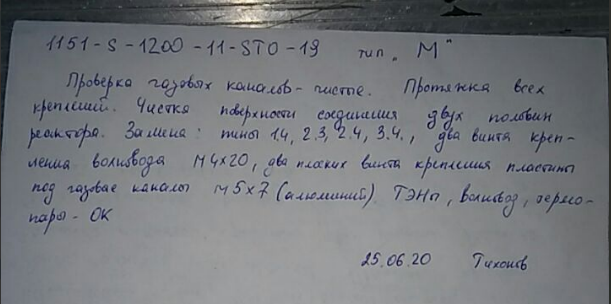 1151-S-1200-11-STO-19 тип „М“
Проверка газовых каналов - чистые. Протяжка всех
креплений. Чистка поверхности соединения двух половин
реактора. Замена: шины 1.4, 2.3, 2.4, 3.4., два винта креп-
ления волновода М4х20, два плоских винта крепления пластины
под газовые каналы М5х7 (алюминий) ТЭНы, волновод, термо-
пары - ОК
25.06.20 Тихонов